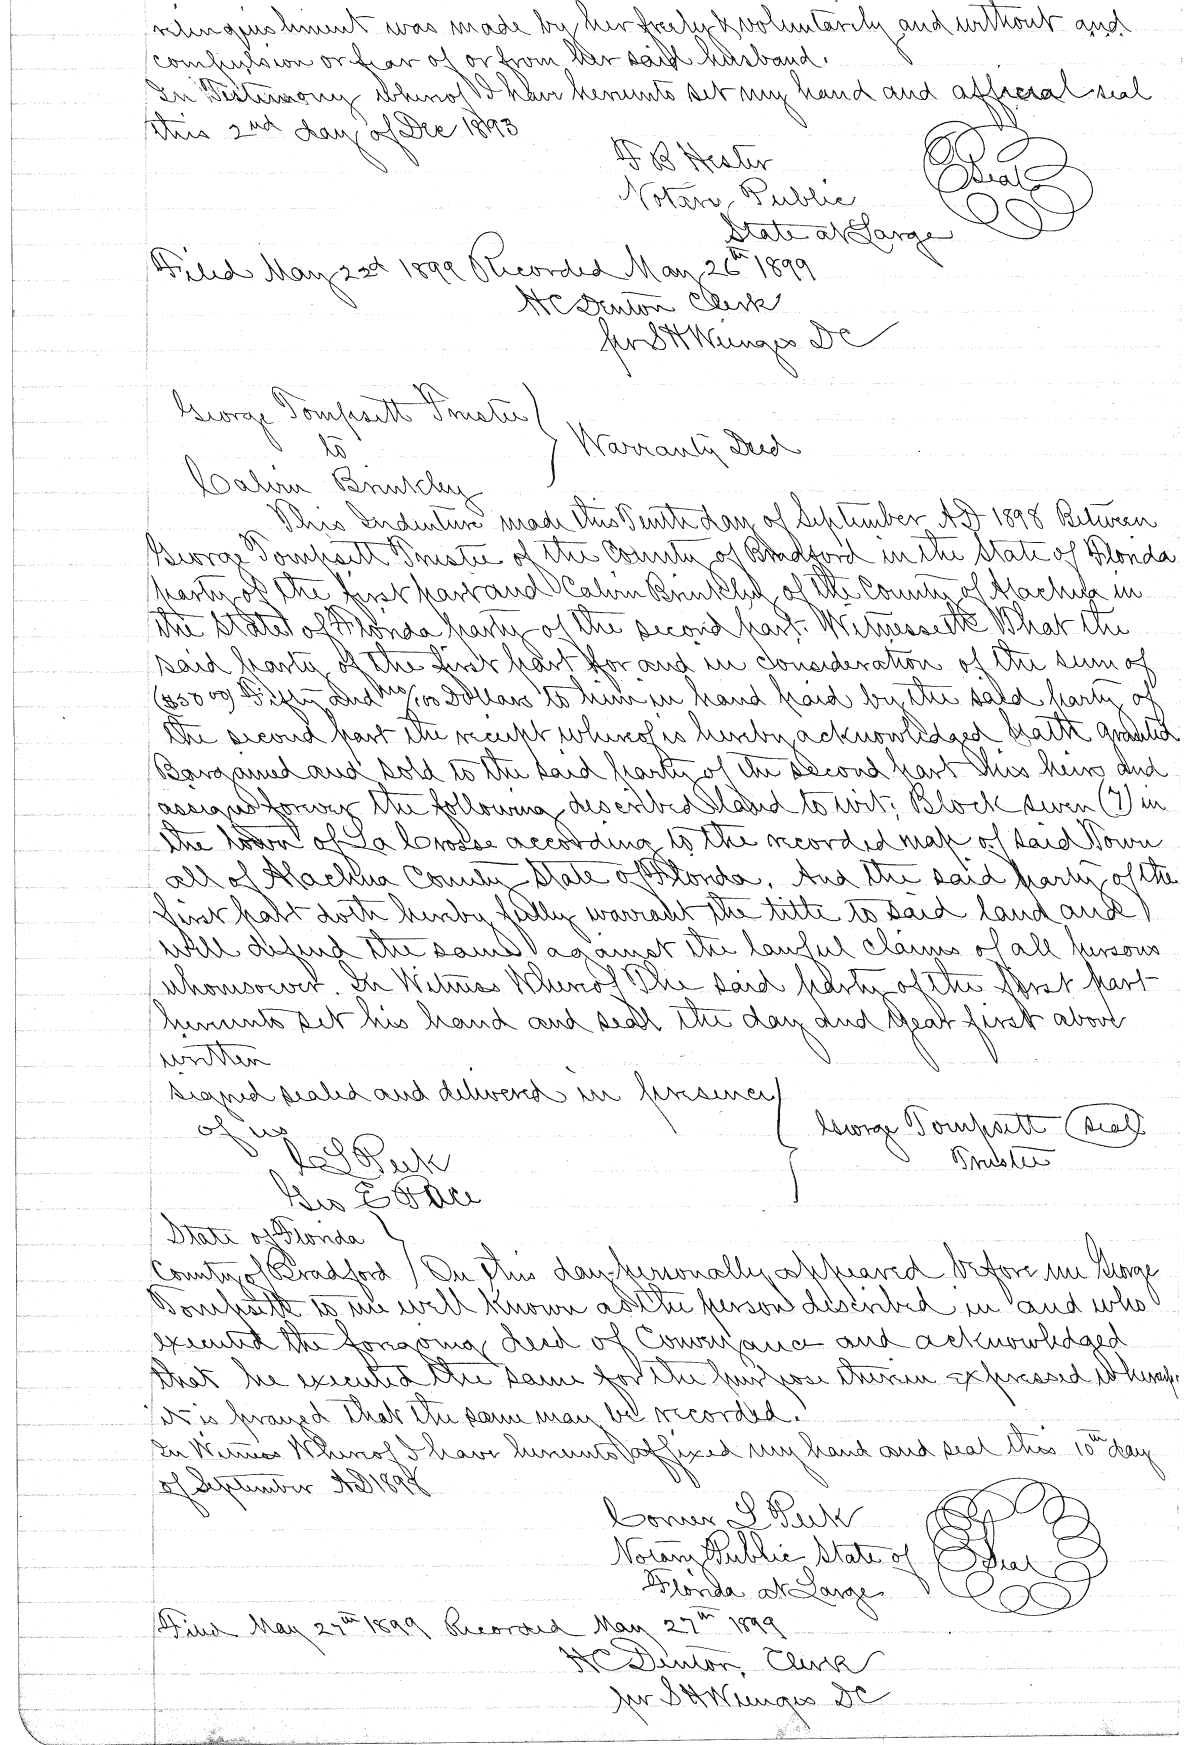 relinquishment was made by her freely & voluntarily and without and
compulsion or fear of or from her said husband.
In Testimony whereof I have hereunto set my hand and official seal
this 2nd day of Dec 1893
F B Hester
Notary Public
Seal
State at Large
Filed May 22d 1899 Recorded May 26th 1899
H C Denton Clerk
per S H Wienges DC
George Tompsett Trustee
to
Warranty Deed
Calvin Brinkley
This Indenture made this Tenth day of September AD 1898 Between
George Tompsett Trustee of the County of Bradford in the State of Florida
party of the first part and Calvin Brinkley of the County of Alachua in
the State of Florida party of the second part. Witnesseth That the
said party of the first part for and in consideration of the sum of
($50 00) Fifty and no/100 Dollars to him in hand paid by the said party of
the second part the receipt whereof is hereby acknowledged hath granted
Bargained and sold to the said party of the second part his heirs and
assigns forever the following described land to wit; Block seven (7) in
the town of La Crosse according to the recorded map of said Town
all of Alachua County State of Florida. And the said party of the
first part doth hereby fully warrant the title to said land and
will defend the same against the lawful claims of all persons
whomsoever. In Witness Whereof The said party of the first part
hereunto set his hand and seal the day and year first above
written
signed sealed and delivered in presence
of us
George Tompsett seal
Trustee
C L Peek
Geo E Pace
State of Florida
County of Bradford On this day personally appeared before me George
Tompsett to me well known as the person described in and who
executed the foregoing deed of Conveyance and acknowledged
that he executed the same for the purpose therein expressed whereupon
it is prayed that the same may be recorded.
In Witness Whereof I have hereunto affixed my hand and seal this 10th day
of September AD 1898
L Peek
Notary Public State of
Seal
Florida at Large
Filed May 27th 1899 Recorded May 27th 1899
H C Denton, Clerk
per S H Wienges DC